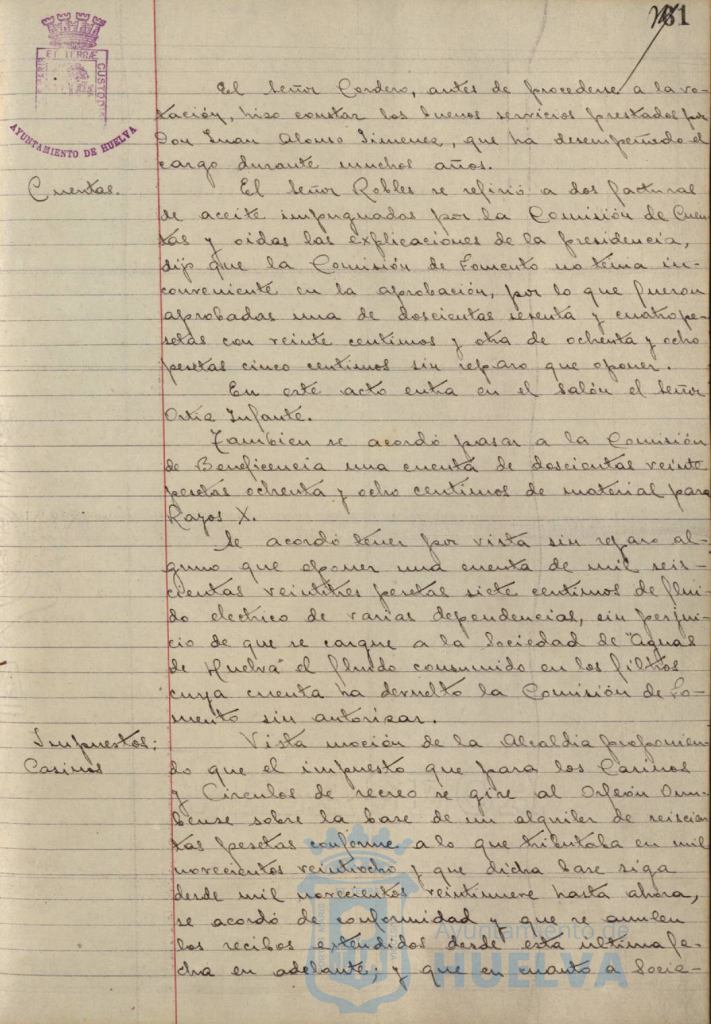 161
ET TERRÆ
CUSTODIA
AYUNTAMIENTO DE HUELVA
El Señor Cordero, antes de procederse a la vo-
tación, hizo constar los buenos servicios prestados por
Don Juan Alonso Jimenez, que ha desempeñado el
cargo durante muchos años.
Cuentas.
El Señor Robles se refirió a dos facturas
de aceite impugnadas por la Comisión de Cuen-
tas y oidas las explicaciones de la presidencia,
dijo que la Comisión de Fomento no tenia in-
conveniente en la aprobación, por lo que fueron
aprobadas una de doscientas sesenta y cuatro pe-
setas con veinte centimos y otra de ochenta y ocho
pesetas cinco centimos sin reparo que oponer.
En este acto entra en el salón el Señor
Ortiz Infante.
Tambien se acordó pasar a la Comisión
de Beneficencia una cuenta de doscientas veinte
pesetas ochenta y ocho centimos de material para
Rayos X.
Se acordó tener por vista sin reparo al-
guno que oponer una cuenta de mil seis-
cientas veintitres pesetas siete centimos de flui-
do electrico de varias dependencias, sin perjui-
cio de que se cargue a la Sociedad de "Aguas
de Huelva" el fluido consumido en los filtros
cuya cuenta ha devuelto la Comisión de Fo-
mento sin autorizar.
Impuestos:
Casinos
Vista moción de la Alcaldia proponien-
do que el impuesto que para los Casinos
y Circulos de recreo se gire al Orfeón Onu-
bense sobre la base de un alquiler de seiscien-
tas pesetas conforme a lo que tributaba en mil
novecientos veintiocho y que dicha base siga
desde mil novecientos veintinueve hasta ahora,
se acordó de conformidad y que se anulen
los recibos extendidos desde esta ultima fe-
cha en adelante; y que en cuanto a Socie-
Ayuntamiento de
HUELVA